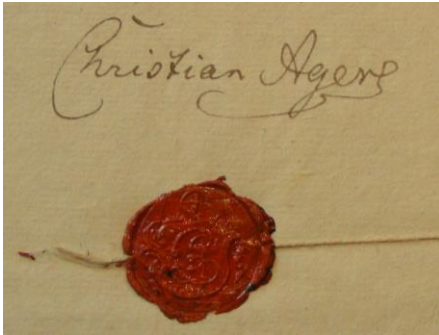 Christian Agers